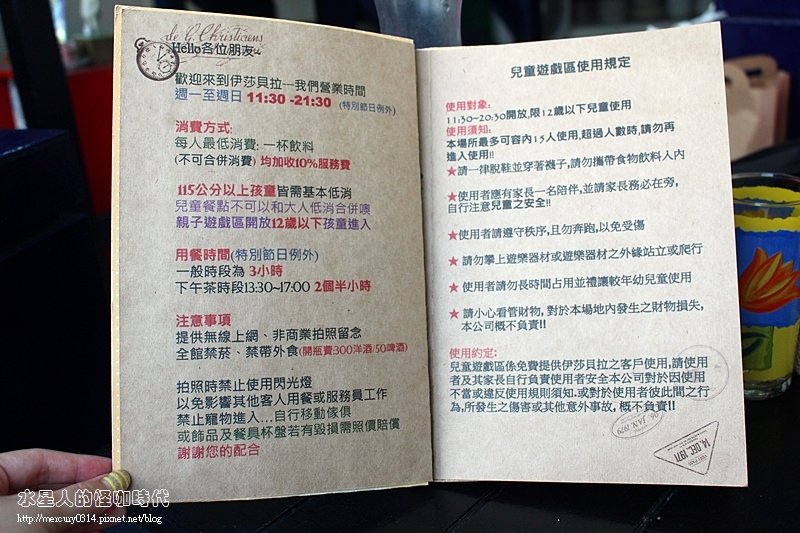 de L. Christiens
Hello各位朋友~
歡迎來到伊莎貝拉---我們營業時間
週一至週日 11:30 -21:30 (特別節日例外)
消費方式:
每人最低消費: 一杯飲料
(不可合併消費) 均加收10%服務費
115公分以上孩童皆需基本低消
兒童餐點不可以和大人低消合併噢
親子遊戲區開放12歲以下孩童進入
用餐時間(特別節日例外)
一般時段為 3小時
下午茶時段13:30~17:00 2個半小時
注意事項
提供無線上網、非商業拍照留念
全館禁菸、禁帶外食(開瓶費:300洋酒/50啤酒)
拍照時禁止使用閃光燈
以免影響其他客人用餐或服務員工作
禁止寵物進入...自行移動傢俱
或飾品及餐具杯盤若有毀損需照價賠償
謝謝您的配合
兒童遊戲區使用規定
使用對象:
11:30~20:30開放,限12歲以下兒童使用
使用須知:
本場所最多可容內15人使用,超過人數時,請勿再
進入使用!!
★請一律脫鞋並穿著襪子,請勿攜帶食物飲料入內
★使用者應有家長一名陪伴,並請家長務必在旁,
自行注意兒童之安全!!
★使用者請遵守秩序,且勿奔跑,以免受傷
★ 請勿攀上遊樂器材或遊樂器材之外緣站立或爬行
★ 使用者請勿長時間占用並禮讓較年幼兒童使用
★ 請小心看管財物, 對於本場地內發生之財物損失,
本公司概不負責!!
使用約定:
兒童遊戲區係免費提供伊莎貝拉之客戶使用,請使用
者及其家長自行負責使用者安全本公司對於因使用
不當或違反使用規則須知.或對於使用者彼此間之行
為,所發生之傷害或其他意外事故, 概不負責!!
JAN. 1979
14. DEC. 1971
水星人的怪咖時代
http://mercury0314.pixnet.net/blog